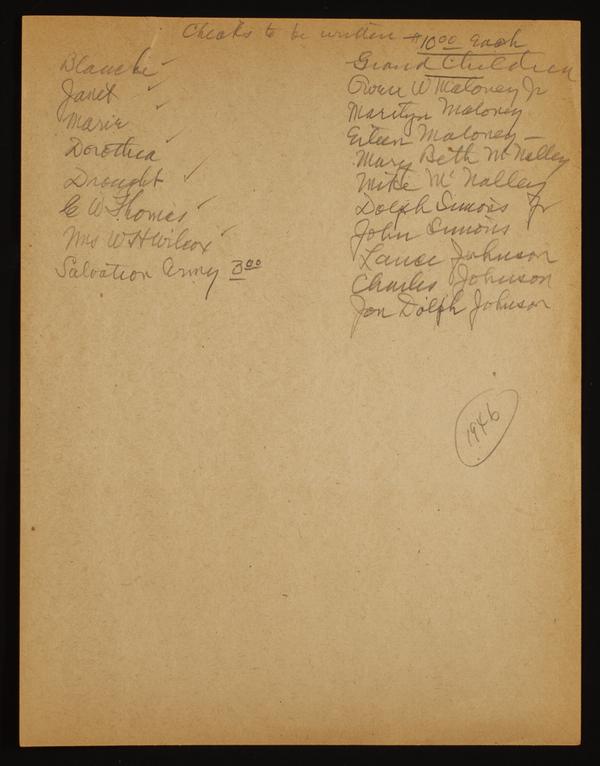 Checks to be written $10.00 Each
Blanche ✓
Janet ✓
Marie ✓
Dorothea ✓
Drought ✓
E W Thomas ✓
Mrs W H Wilcox ✓
Salvation Army 3.00
Grand Children
Owen W Maloney Jr
Marilyn Maloney
Eileen Maloney –
Mary Beth McNalley
Mike McNalley
Dolph Simons Jr
John Simons
Lance Johnson
Charles Johnson
Jon Dolph Johnson
1946